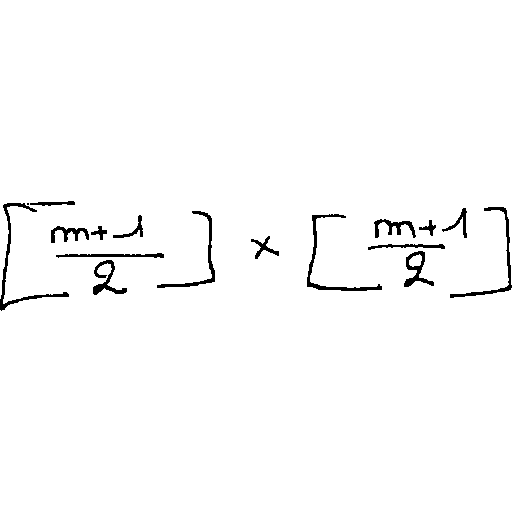 [\frac{m+1}{2}] × [\frac{m+1}{2}]